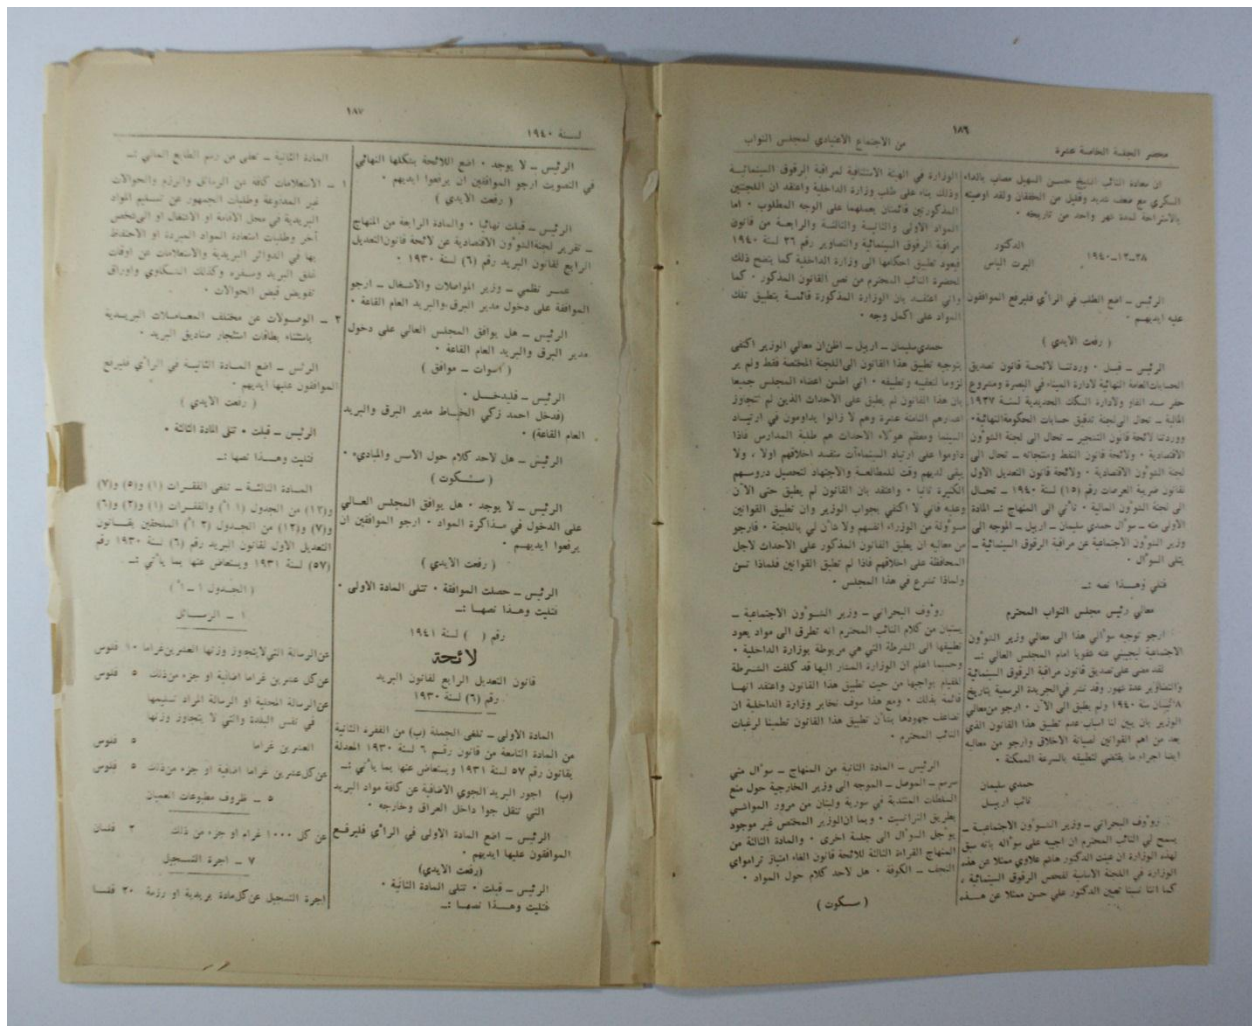 ١٨٦
محضر الجلسة الخامسة عشرة
من الاجتماع الاعتيادي لمجلس النواب
ان سعادة النائب الشيخ حسن السهيل مصاب بالداء
السكري مع ضعف شديد وقليل من الخفقان ولقد اوصيته
بالاستراحة لمدة شهر واحد من تاريخه ٠
٢٨ــ١٢ــ١٩٤٠
الدكتور
البرت الياس
الرئيس ــ اضع الطلب في الرأي فليرفع الموافقون
عليه ايديهم ٠
( رفعت الايدي )
الرئيس ــ قبل ٠ وردتنا لائحة قانون تصديق
الحسابات العامة النهائية لادارة الميناء في البصرة ومشروع
حفر سد الفاو ولادارة السكك الحديدية لسنة ١٩٣٧
المالية ــ تحال الى لجنة تدقيق حسابات الحكومة النهائية٠
ووردتنا لائحة قانون التشجير ــ تحال الى لجنة الشؤون
الاقتصادية ٠ ولائحة قانون النفط ومنتجاته ــ تحال الى
لجنة الشؤون الاقتصادية ٠ ولائحة قانون التعديل الاول
لقانون ضريبة العرصات رقم (١٥) لسنة ١٩٤٠ ــ تحال
الى لجنة الشؤون المالية ٠ نأتي الى المنهاج ــ المادة
الاولى منه ــ سؤال حمدي سليمان ــ اربيل ــ الموجه الى
وزير الشؤون الاجتماعية عن مراقبة الرقوق السينمائية ــ
يتلى السؤال ٠
فتلي وهذا نصه :ــ
معالي رئيس مجلس النواب المحترم
ارجو توجيه سؤالي هذا الى معالي وزير الشؤون
الاجتماعية ليجيبني عنه شفويا امام المجلس العالي :ــ
لقد مضى على تصديق قانون مراقبة الرقوق السينمائية
والتصاوير عدة شهور وقد نشر في الجريدة الرسمية بتاريخ
سنة ١٩٤٠ ولم يطبق الى الآن ٠ ارجو من معالي
الوزير بان يبين لنا اسباب عدم تطبيق هذا القانون الذي
يعد من اهم القوانين لصيانة الاخلاق وارجو من معاليه
ايضا اجراء ما يقتضي لتطبيقه بالسرعة الممكنة ٠
حمدي سليمان
نائب اربيل
رؤوف البحراني ــ وزير الشؤون الاجتماعية ــ
يسمح لي النائب المحترم ان اجيبه على سؤاله بانه سبق
لهذه الوزارة ان عينت الدكتور هاشم علاوي ممثلا عن هذه
الوزارة في اللجنة الاساسية لفحص الرقوق السينمائية ،
كما اننا نسبنا تعيين الدكتور علي حسن ممثلا عن هذه
الوزارة في الهيئة الاستئنافية لمراقبة الرقوق السينمائية
وذلك بناء على طلب وزارة الداخلية واعتقد ان اللجنتين
المذكورتين قائمتان بعملهما على الوجه المطلوب ٠ اما
المواد الاولى والثانية والثالثة والرابعة من قانون
مراقبة الرقوق السينمائية والتصاوير رقم ٣٦ لسنة ١٩٤٠
فيعود تطبيق احكامها الى وزارة الداخلية كما يتضح ذلك
لحضرة النائب المحترم من نص القانون المذكور ٠ كما
واني اعتقد بان الوزارة المذكورة قائمة بتطبيق تلك
المواد على اكمل وجه ٠
حمدي سليمان ــ اربيل ــ اظن ان معالي الوزير اكتفى
بتوجيه تطبيق هذا القانون الى اللجنة المختصة فقط ولم ير
لزوما لتعقيبه وتطبيقه ٠ اني اطمن اعضاء المجلس جميعا
بان هذا القانون لم يطبق على الاحداث الذين لم تتجاوز
اعمارهم الثامنة عشرة وهم لا زالوا يداومون في ارتياد
السينما ومعظم هؤلاء الاحداث هم طلبة المدارس فاذا
داوموا على ارتياد السينماءات ستفسد اخلاقهم اولا ، ولا
يبقى لديهم وقت للمطالعة والاجتهاد لتحصيل دروسهم
الكثيرة ثانيا ٠ واعتقد بان القانون لم يطبق حتى الآن
وعليه فاني لا اكتفي بجواب الوزير وان تطبيق القوانين
مسؤولة عن الوزراء انفسهم ولا شأن لي باللجنة ٠ فارجو
من معاليه ان يطبق القانون المذكور على الاحداث لاجل
المحافظة على اخلاقهم فاذا لم تطبق القوانين فلماذا تسن
ولماذا نشرع في هذا المجلس ٠
رؤوف البحراني ــ وزير الشؤون الاجتماعية ــ
يستبان من كلام النائب المحترم انه تطرق الى مواد يعود
تطبيقها الى الشرطة التي هي مربوطة بوزارة الداخلية ٠
وحسبما اعلم ان الوزارة المشار اليها قد كلفت الشرطة
للقيام بواجبها من حيث تطبيق هذا القانون واعتقد انها
قائمة بذلك ٠ ومع هذا سوف نخابر وزارة الداخلية ان
تضاعف جهودها بشأن تطبيق هذا القانون تطمينا لرغبات
النائب المحترم ٠
الرئيس ــ المادة الثانية من المنهاج ــ سؤال متي
سرسم ــ الموصل ــ الموجه الى وزير الخارجية حول منع
السلطات المنتدبة في سورية ولبنان من مرور المواشي
بطريق الترانسيت ٠ وبما ان الوزير المختص غير موجود
يؤجل السؤال الى جلسة اخرى ٠ والمادة الثالثة من
المنهاج القراءة الثالثة للائحة قانون الغاء امتياز ترامواي
النجف ــ الكوفة ٠ هل لاحد كلام حول المواد ٠
( سكوت )
١٨٧
لسنة ١٩٤٠
الرئيس ــ لا يوجد ٠ اضع اللائحة بشكلها النهائي
في التصويت ارجو الموافقين ان يرفعوا ايديهم ٠
( رفعت الايدي )
الرئيس ــ قبلت نهائيا ٠ والمادة الرابعة من المنهاج
ــ تقرير لجنة الشؤون الاقتصادية عن لائحة قانون التعديل
الرابع لقانون البريد رقم (٦) لسنة ١٩٣٠ ٠
عمر نظمي ــ وزير المواصلات والاشغال ــ ارجو
الموافقة على دخول مدير البرق والبريد العام القاعة ٠
الرئيس ــ هل يوافق المجلس العالي على دخول
مدير البرق والبريد العام القاعة ٠
( اصوات ــ موافق )
الرئيس ــ فليدخل ٠
(فدخل احمد زكي الخياط مدير البرق والبريد
العام القاعة) ٠
الرئيس ــ هل لاحد كلام حول الاسس والمبادىء٠
( سكوت )
الرئيس ــ لا يوجد ٠ هل يوافق المجلس العالي
على الدخول في مذاكرة المواد ٠ ارجو الموافقين ان
يرفعوا ايديهم ٠
( رفعت الايدي )
الرئيس ــ حصلت الموافقة ٠ تتلى المادة الاولى ٠
فتليت وهذا نصها :ــ
رقم ( ) لسنة ١٩٤١
لائحة
قانون التعديل الرابع لقانون البريد
رقم (٦) لسنة ١٩٣٠
المادة الاولى ــ تلغى الجملة (ب) من الفقرة الثانية
من المادة التاسعة من قانون رقم ٦ لسنة ١٩٣٠ المعدلة
بقانون رقم ٥٧ لسنة ١٩٣١ ويستعاض عنها بما يأتي :ــ
(ب) اجور البريد الجوي الاضافية عن كافة مواد البريد
التي تنقل جوا داخل العراق وخارجه ٠
الرئيس ــ اضع المادة الاولى في الرأي فليرفع
الموافقون عليها ايديهم ٠
(رفعت الايدي)
الرئيس ــ قبلت ٠ تتلى المادة الثانية ٠
فتليت وهذا نصها :ــ
المادة الثانية ــ تعفى من رسم الطابع المالي :ــ
١ ــ الاستعلامات كافة عن الرسائل والرزم والحوالات
غير المدفوعة وطلبات الجمهور عن تسليم المواد
البريدية في محل الاقامة او الاشغال او الى شخص
آخر وطلبات استعادة المواد المبردة او الاحتفاظ
بها في الدوائر البريدية والاستعلامات عن اوقات
غلق البريد وسفره وكذلك الشكاوي واوراق
تفويض قبض الحوالات ٠
٢ ــ الوصولات عن مختلف المعاملات البريدية
باستثناء بطاقات استئجار صناديق البريد ٠
الرئس ــ اضع المادة الثانية في الرأي فليرفع
الموافقون عليها ايديهم ٠
( رفعت الايدي )
الرئيس ــ قبلت ٠ تتلى المادة الثالثة ٠
فتليت وهذا نصها :ــ
المادة الثالثة ــ تلغى الفقرات (١) و(٥) و(٧)
و(١٣) من الجدول (١ أ) والفقرات (١) و(٣) و(٦)
و(٧) و(١٢) من الجدول (٢ أ) الملحقين بقانون
التعديل الاول لقانون البريد رقم (٦) لسنة ١٩٣٠ رقم
(٥٧) لسنة ١٩٣١ ويستعاض عنها بما يأتي :ــ
( الجدول ١ ــ أ )
١ ــ الرسائل
عن الرسالة التي لا يتجاوز وزنها العشرين غراما ١٠ فلوس
عن كل عشرين غراما اضافية او جزء من ذلك ٥ فلوس
عن الرسالة المحلية او الرسالة المراد تسليمها
في نفس البلدة والتي لا يتجاوز وزنها
العشرين غراما ٥ فلوس
عن كل عشرين غراما اضافية او جزء من ذلك ٥ فلوس
٥ ــ ظروف مطبوعات العميان
عن كل ١٠٠٠ غرام او جزء من ذلك ٣ فلسان
٧ ــ اجرة التسجيل
اجرة التسجيل عن كل مادة بريدية او رزمة ٢٠ فلسا